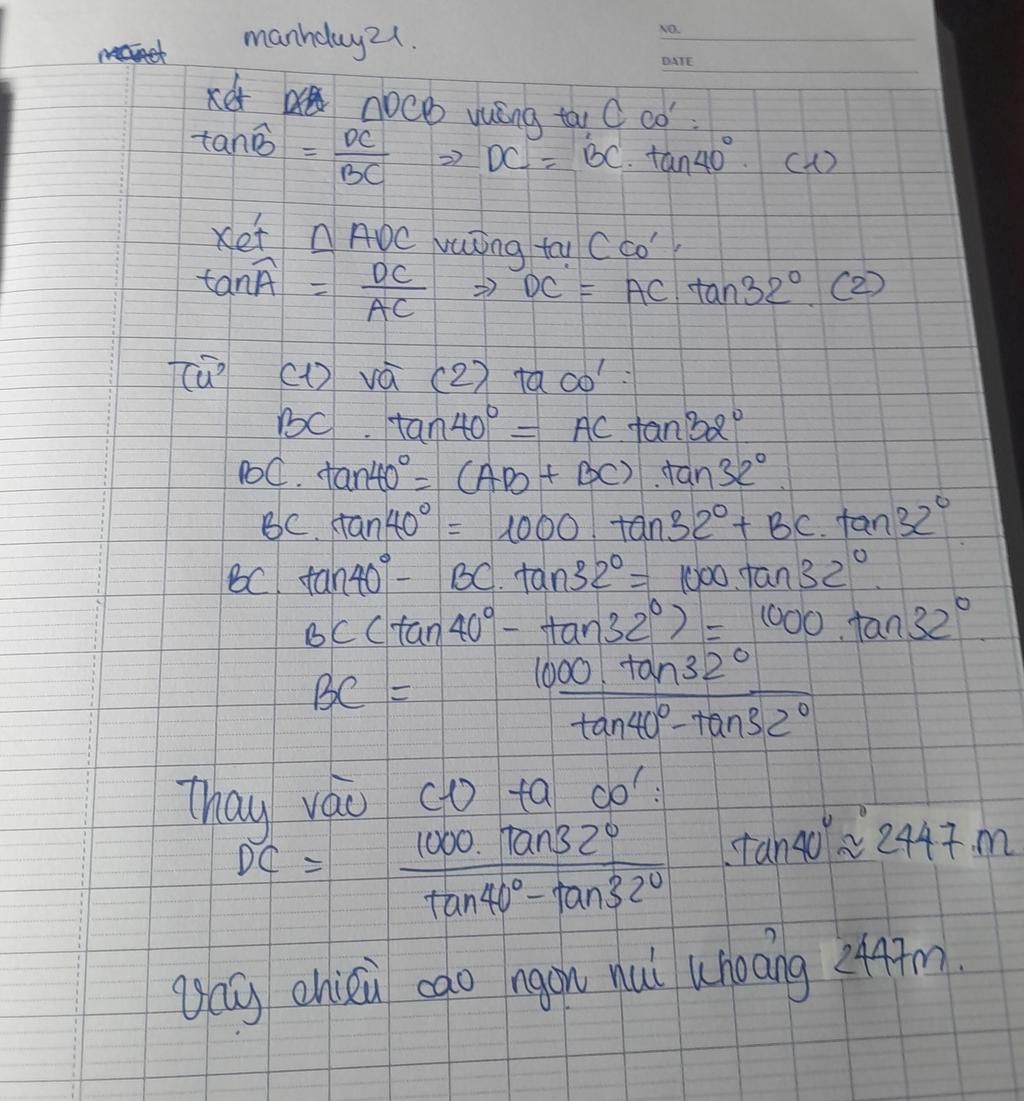 manhduy21.
NO.
DATE
Xét ΔDCB vuông tại C có:
tanB̂ = DC/BC ⇒ DC = BC. tan40°. (1)
Xét Δ ADC vuông tại C có:
tanÂ = DC/AC ⇒ DC = AC. tan32°. (2)
Từ (1) và (2) ta có:
BC . tan40° = AC. tan32°
BC. tan40° = (AB + BC) .tan32°.
BC. tan40° = 1000. tan32° + BC. tan32°
BC. tan40° - BC. tan32° = 1000.tan32°.
BC(tan40° - tan32°) = 1000.tan32°.
BC = 1000. tan32° / tan40° - tan32°
Thay vào (1) ta có:
DC = 1000. tan32° / tan40° - tan32° .tan40° ≈ 2447.m
Vậy chiều cao ngọn núi khoảng 2447m.